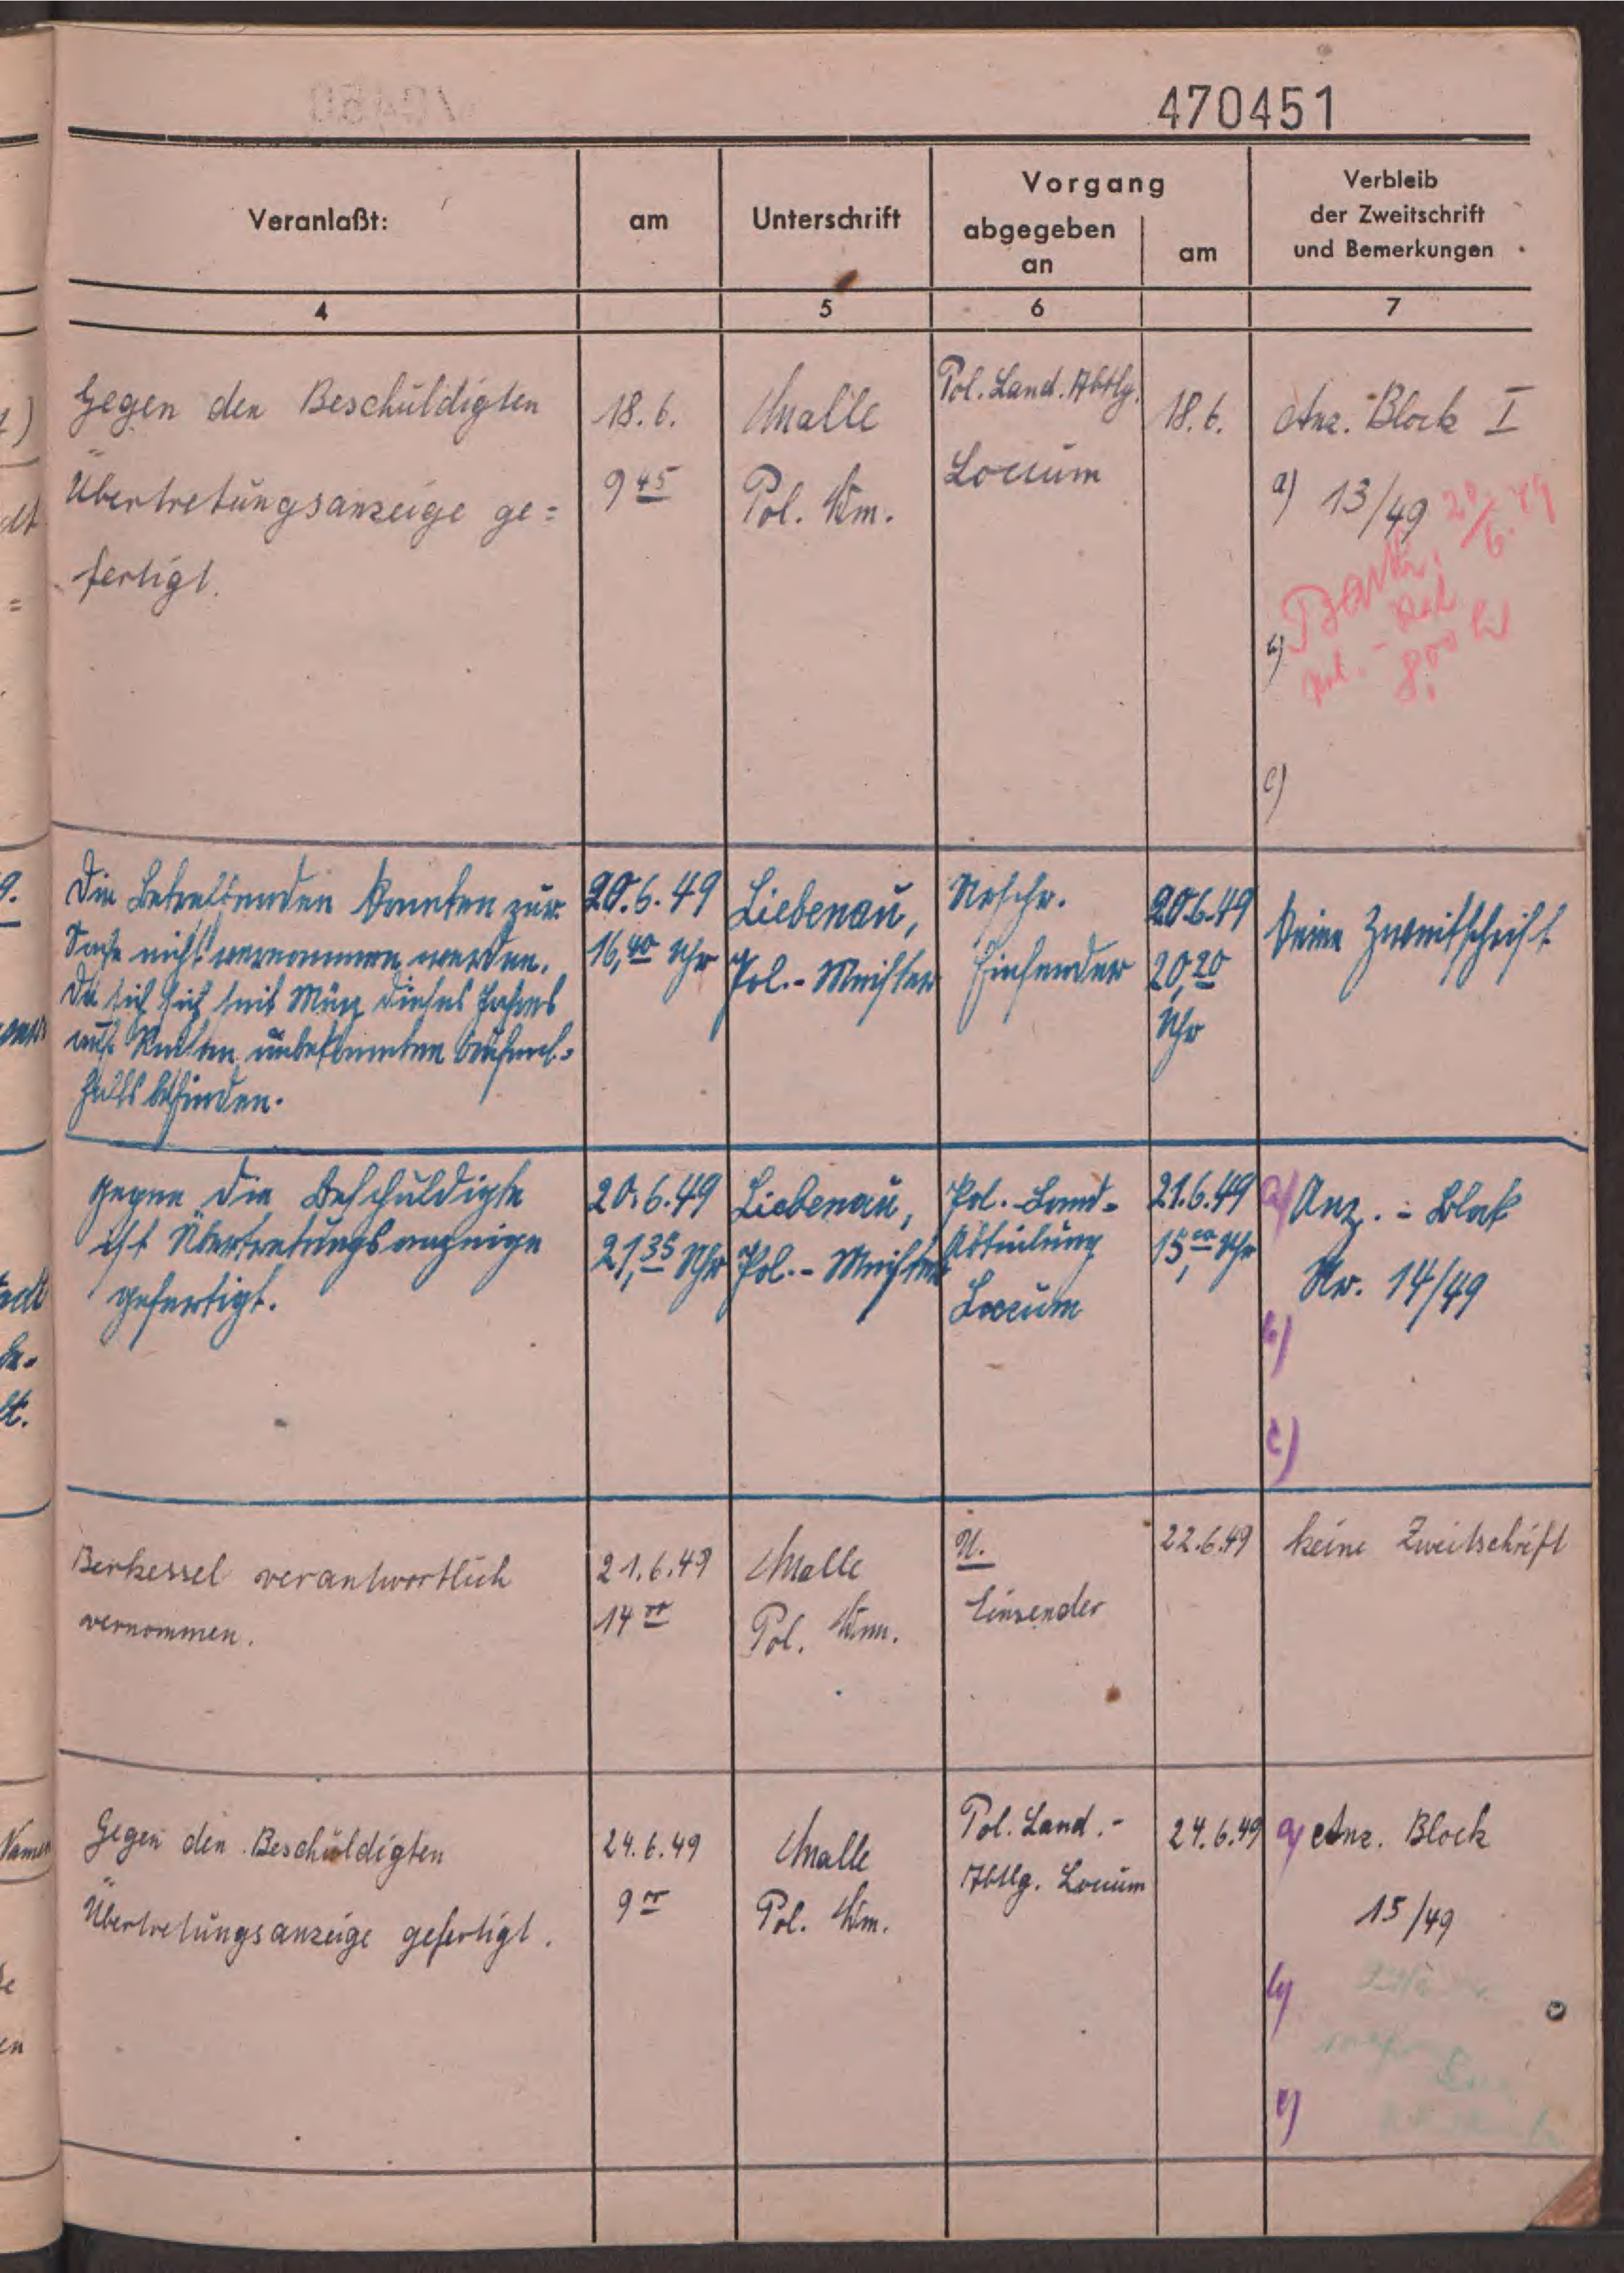 470451
Veranlaßt:
am
Unterschrift
Vorgang
abgegeben
an
am
Verbleib
der Zweitschrift
und Bemerkungen
4
5
6
7
Gegen den Beschuldigten
Übertretungsanzeige ge=
fertigt.
18.6.
9 45
Malle
Pol. Wm.
Pol. Land. Abtlg.
Loccum
18.6.
Anz. Block I
a) 13/49
20/6. 49
b)
8,00
c)
Die Betreffenden konnten zur
Sache nicht vernommen werden.
Da sie sich seit März dieses Jahres
auf Reisen unbekannten Aufent=
halts befinden.
20.6.49
16,40 Uhr
Liebenau,
Pol.-Meister
Urschr.
Einsender
20.6.49
20,20
Uhr
keine Zweitschrift
gegen die Beschuldigte
ist Übertretungsanzeige
gefertigt.
20.6.49
21,35 Uhr
Liebenau,
Pol.-Meister
Pol.-Land=
Abteilung
Loccum
21.6.49
15,00 Uhr
a) Anz.-Block
Nr. 14/49
b)
c)
Berkessel verantwortlich
vernommen.
21.6.49
14 00
Malle
Pol. Wm.
U.
Einsender
22.6.49
keine Zweitschrift
Gegen den Beschuldigten
Übertretungsanzeige gefertigt.
24.6.49
9 00
Malle
Pol. Wm.
Pol. Land.-
Abtlg. Loccum
24.6.49
a) Anz. Block
15/49
b)
c)